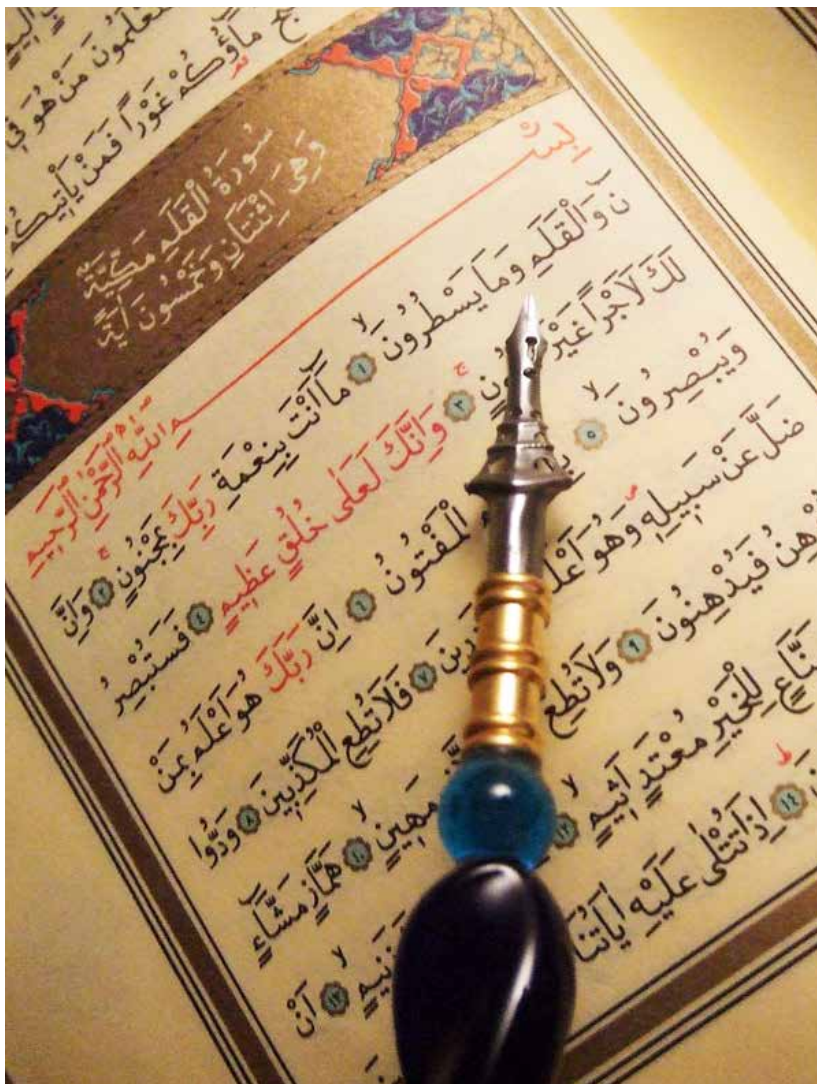 مَنْ هُوَ فِي
مَٓاؤُ۬كُمْ غَوْرًا فَمَنْ يَأْتِيكُمْ
سُورَةُ الْقَلَمِ مَكِّيَّةٌ
وَهِيَ اِثْنَتَانِ وَخَمْسُونَ اٰيَةً
بِسْمِ اللّٰهِ الرَّحْمٰنِ الرَّحِيمِ
نٓ وَالْقَلَمِ وَمَا يَسْطُرُونَۙ ﴿١﴾ مَٓا اَنْتَ بِنِعْمَةِ رَبِّكَ بِمَجْنُونٍۚ ﴿٢﴾ وَاِنَّ
لَكَ لَاَجْرًا غَيْرَ ﴿٣﴾ وَاِنَّكَ لَعَلٰى خُلُقٍ عَظِيمٍ ﴿٤﴾ فَسَتُبْصِرُ
وَيُبْصِرُونَۙ ﴿٥﴾ الْمَفْتُونُ ﴿٦﴾ اِنَّ رَبَّكَ هُوَ اَعْلَمُ بِمَنْ
ضَلَّ عَنْ سَبِيلِهِ وَهُوَ ﴿٧﴾ فَلَا تُطِعِ الْمُكَذِّبِينَ ﴿٨﴾ وَدُّوا
فَيُدْهِنُونَ ﴿٩﴾ وَلَا تُطِعْ مَهِينٍۙ ﴿١٠﴾ هَمَّازٍ مَشَّٓاءٍ
لِلْخَيْرِ مُعْتَدٍ اَثِيمٍۙ ﴿١٢﴾ زَنِيمٍۙ ﴿١٣﴾ اَنْ
﴿١٤﴾ اِذَا تُتْلٰى عَلَيْهِ اٰيَاتُنَا